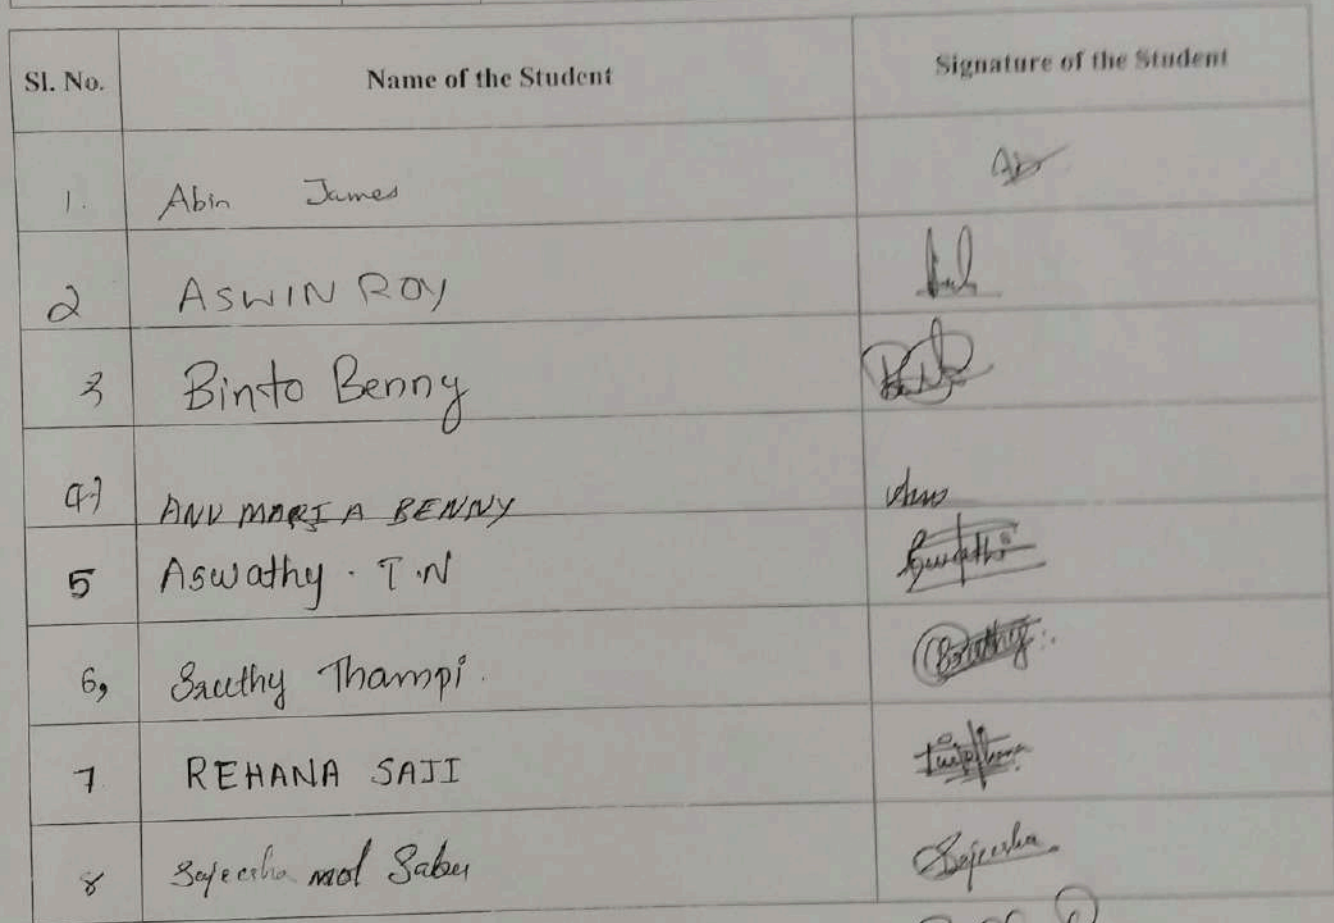 Sl. No. Name of the Student Signature of the Student
1. Abin James
2 ASWIN ROY
3 Binto Benny
4) ANU MARIA BENNY Anu
5 Aswathy . T.N
6, Sruthy Thampi. Sruthy
7 REHANA SAJI
8 Sajeesha mol Sabu Sajeesha